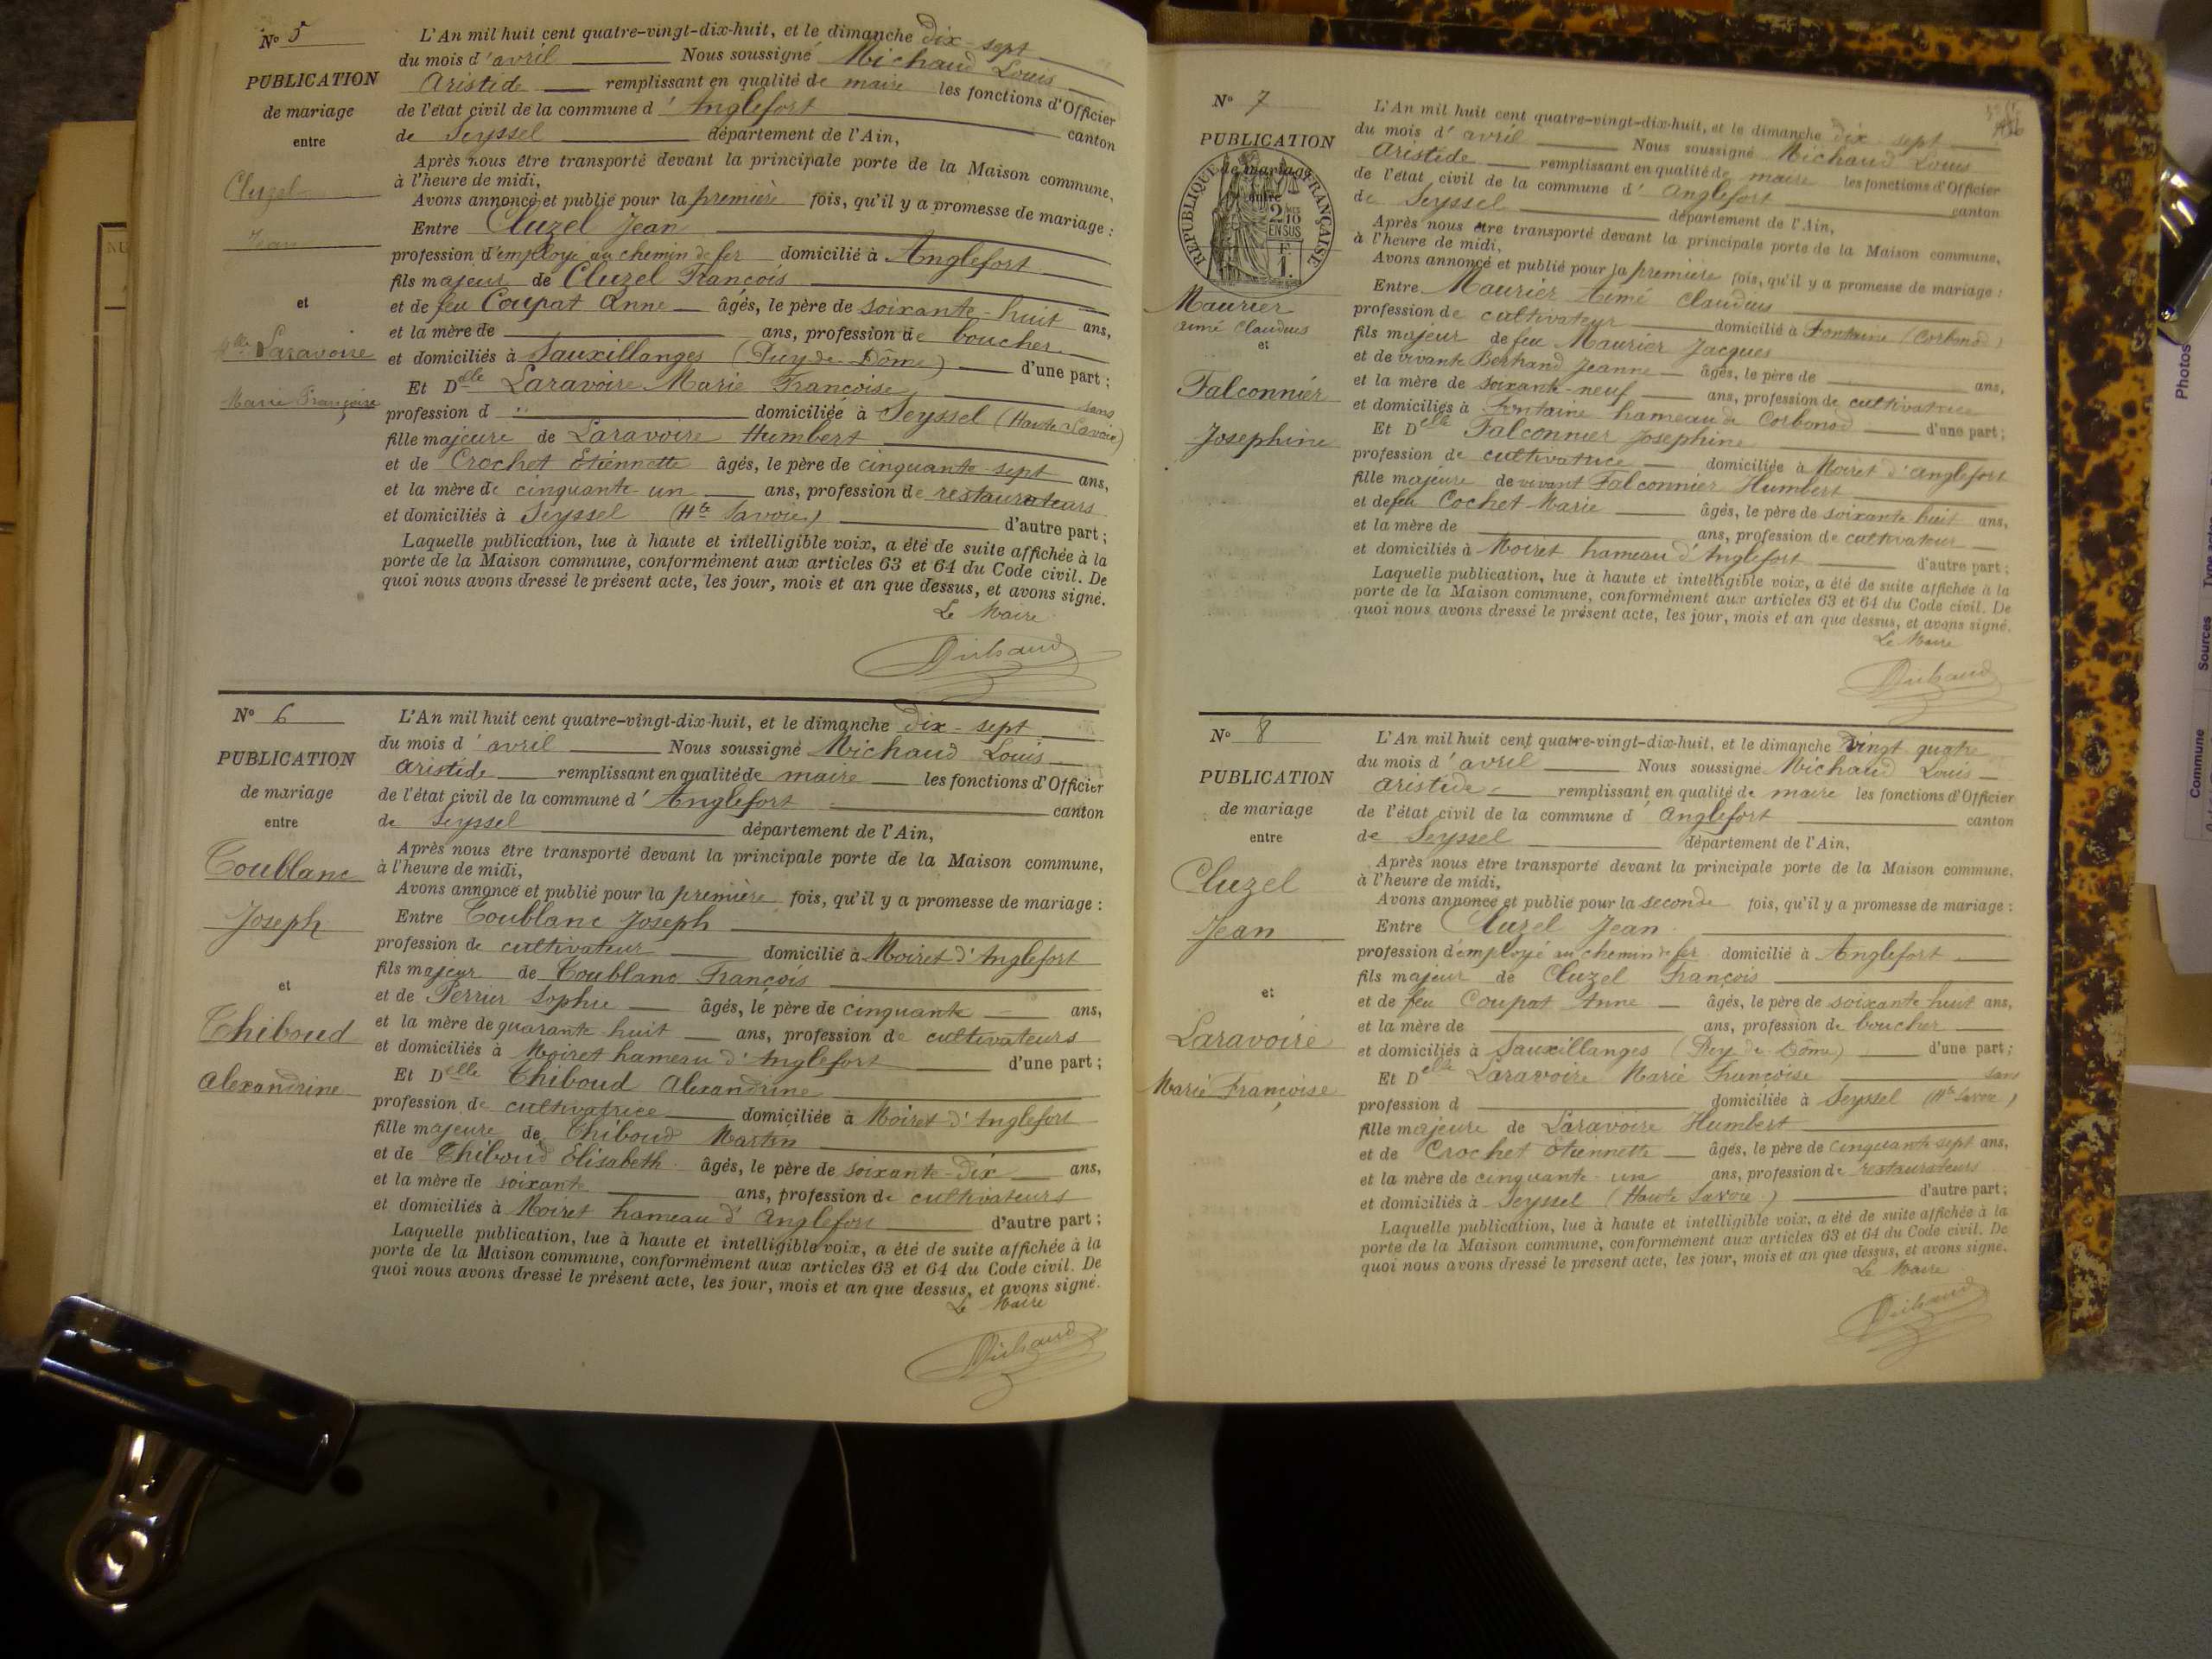 N° 5
PUBLICATION
de mariage
entre
Cluzel
Jean
et
Laravoire
Marie Françoise
L'An mil huit cent quatre-vingt-dix-huit, et le dimanche dix-sept
du mois d'avril Nous soussigné Michaud Louis
Aristide remplissant en qualité de maire les fonctions d'Officier
de l'état civil de la commune d'Anglefort canton
de Seyssel département de l'Ain,
Après nous être transporté devant la principale porte de la Maison commune,
à l'heure de midi,
Avons annoncé et publié pour la première fois, qu'il y a promesse de mariage :
Entre Cluzel Jean
profession d'employé au chemin de fer domicilié à Anglefort
fils majeur de Cluzel François
et de feu Coupat Anne âgés, le père de soixante-huit ans,
et la mère de ans, profession de boucher
et domiciliés à Sauxillanges (Puy de Dôme) d'une part ;
Et Delle Laravoire Marie Françoise sans
profession d domiciliée à Seyssel (Haute Savoie)
fille majeure de Laravoire Humbert
et de Crochet Etiennette âgés, le père de cinquante-sept ans,
et la mère de cinquante-un ans, profession de restaurateurs
et domiciliés à Seyssel (Hte Savoie) d'autre part ;
Laquelle publication, lue à haute et intelligible voix, a été de suite affichée à la
porte de la Maison commune, conformément aux articles 63 et 64 du Code civil. De
quoi nous avons dressé le présent acte, les jour, mois et an que dessus, et avons signé.
Le Maire
Michaud
N° 6
PUBLICATION
de mariage
entre
Toublanc
Joseph
et
Thiboud
Alexandrine
L'An mil huit cent quatre-vingt-dix-huit, et le dimanche dix-sept
du mois d'avril Nous soussigné Michaud Louis
Aristide remplissant en qualité de maire les fonctions d'Officier
de l'état civil de la commune d'Anglefort canton
de Seyssel département de l'Ain,
Après nous être transporté devant la principale porte de la Maison commune,
à l'heure de midi,
Avons annoncé et publié pour la première fois, qu'il y a promesse de mariage :
Entre Toublanc Joseph
profession de cultivateur domicilié à Moiret d'Anglefort
fils majeur de Toublanc François
et de Perrier Sophie âgés, le père de cinquante ans,
et la mère de quarante huit ans, profession de cultivateurs
et domiciliés à Moiret hameau d'Anglefort d'une part ;
Et Delle Thiboud Alexandrine
profession de cultivatrice domiciliée à Moiret d'Anglefort
fille majeure de Thiboud Martin
et de Thiboud Elisabeth âgés, le père de soixante-dix ans,
et la mère de soixante ans, profession de cultivateurs
et domiciliés à Moiret hameau d'Anglefort d'autre part ;
Laquelle publication, lue à haute et intelligible voix, a été de suite affichée à la
porte de la Maison commune, conformément aux articles 63 et 64 du Code civil. De
quoi nous avons dressé le présent acte, les jour, mois et an que dessus, et avons signé.
Le Maire
Michaud
N° 7
PUBLICATION
de mariage
entre
RÉPUBLIQUE FRANÇAISE
2/10
EN SUS
F
1.
Maurier
Aimé Claudius
et
Falconnier
Josephine
L'An mil huit cent quatre-vingt-dix-huit, et le dimanche dix sept
du mois d'avril Nous soussigné Michaud Louis
Aristide remplissant en qualité de maire les fonctions d'Officier
de l'état civil de la commune d'Anglefort canton
de Seyssel département de l'Ain,
Après nous être transporté devant la principale porte de la Maison commune,
à l'heure de midi,
Avons annoncé et publié pour la première fois, qu'il y a promesse de mariage :
Entre Maurier Aimé Claudius
profession de cultivateur domicilié à Fontaine (Corbonod)
fils majeur de feu Maurier Jacques
et de vivante Berthand Jeanne âgés, le père de ans,
et la mère de soixante-neuf ans, profession de cultivatrice
et domiciliés à Fontaine hameau de Corbonod d'une part ;
Et Delle Falconnier Josephine
profession de cultivatrice domiciliée à Moiret d'Anglefort
fille majeure de vivant Falconnier Humbert
et de feu Cochet Marie âgés, le père de soixante huit ans,
et la mère de ans, profession de cultivateur
et domiciliés à Moiret hameau d'Anglefort d'autre part ;
Laquelle publication, lue à haute et intelligible voix, a été de suite affichée à la
porte de la Maison commune, conformément aux articles 63 et 64 du Code civil. De
quoi nous avons dressé le présent acte, les jour, mois et an que dessus, et avons signé.
Le Maire
Michaud
N° 8
PUBLICATION
de mariage
entre
Cluzel
Jean
et
Laravoire
Marie Françoise
L'An mil huit cent quatre-vingt-dix-huit, et le dimanche vingt quatre
du mois d'avril Nous soussigné Michaud Louis
Aristide remplissant en qualité de maire les fonctions d'Officier
de l'état civil de la commune d'Anglefort canton
de Seyssel département de l'Ain,
Après nous être transporté devant la principale porte de la Maison commune,
à l'heure de midi,
Avons annoncé et publié pour la seconde fois, qu'il y a promesse de mariage :
Entre Cluzel Jean
profession d'employé au chemin de fer domicilié à Anglefort
fils majeur de Cluzel François
et de feu Coupat Anne âgés, le père de soixante huit ans,
et la mère de ans, profession de boucher
et domiciliés à Sauxillanges (Puy de Dôme) d'une part ;
Et Delle Laravoire Marie Françoise sans
profession d domiciliée à Seyssel (Hte Savoie)
fille majeure de Laravoire Humbert
et de Crochet Etiennette âgés, le père de cinquante-sept ans,
et la mère de cinquante-un ans, profession de restaurateurs
et domiciliés à Seyssel (Haute Savoie) d'autre part ;
Laquelle publication, lue à haute et intelligible voix, a été de suite affichée à la
porte de la Maison commune, conformément aux articles 63 et 64 du Code civil. De
quoi nous avons dressé le présent acte, les jour, mois et an que dessus, et avons signé.
Le Maire
Michaud
Photos
Type acte
Sources
Commune